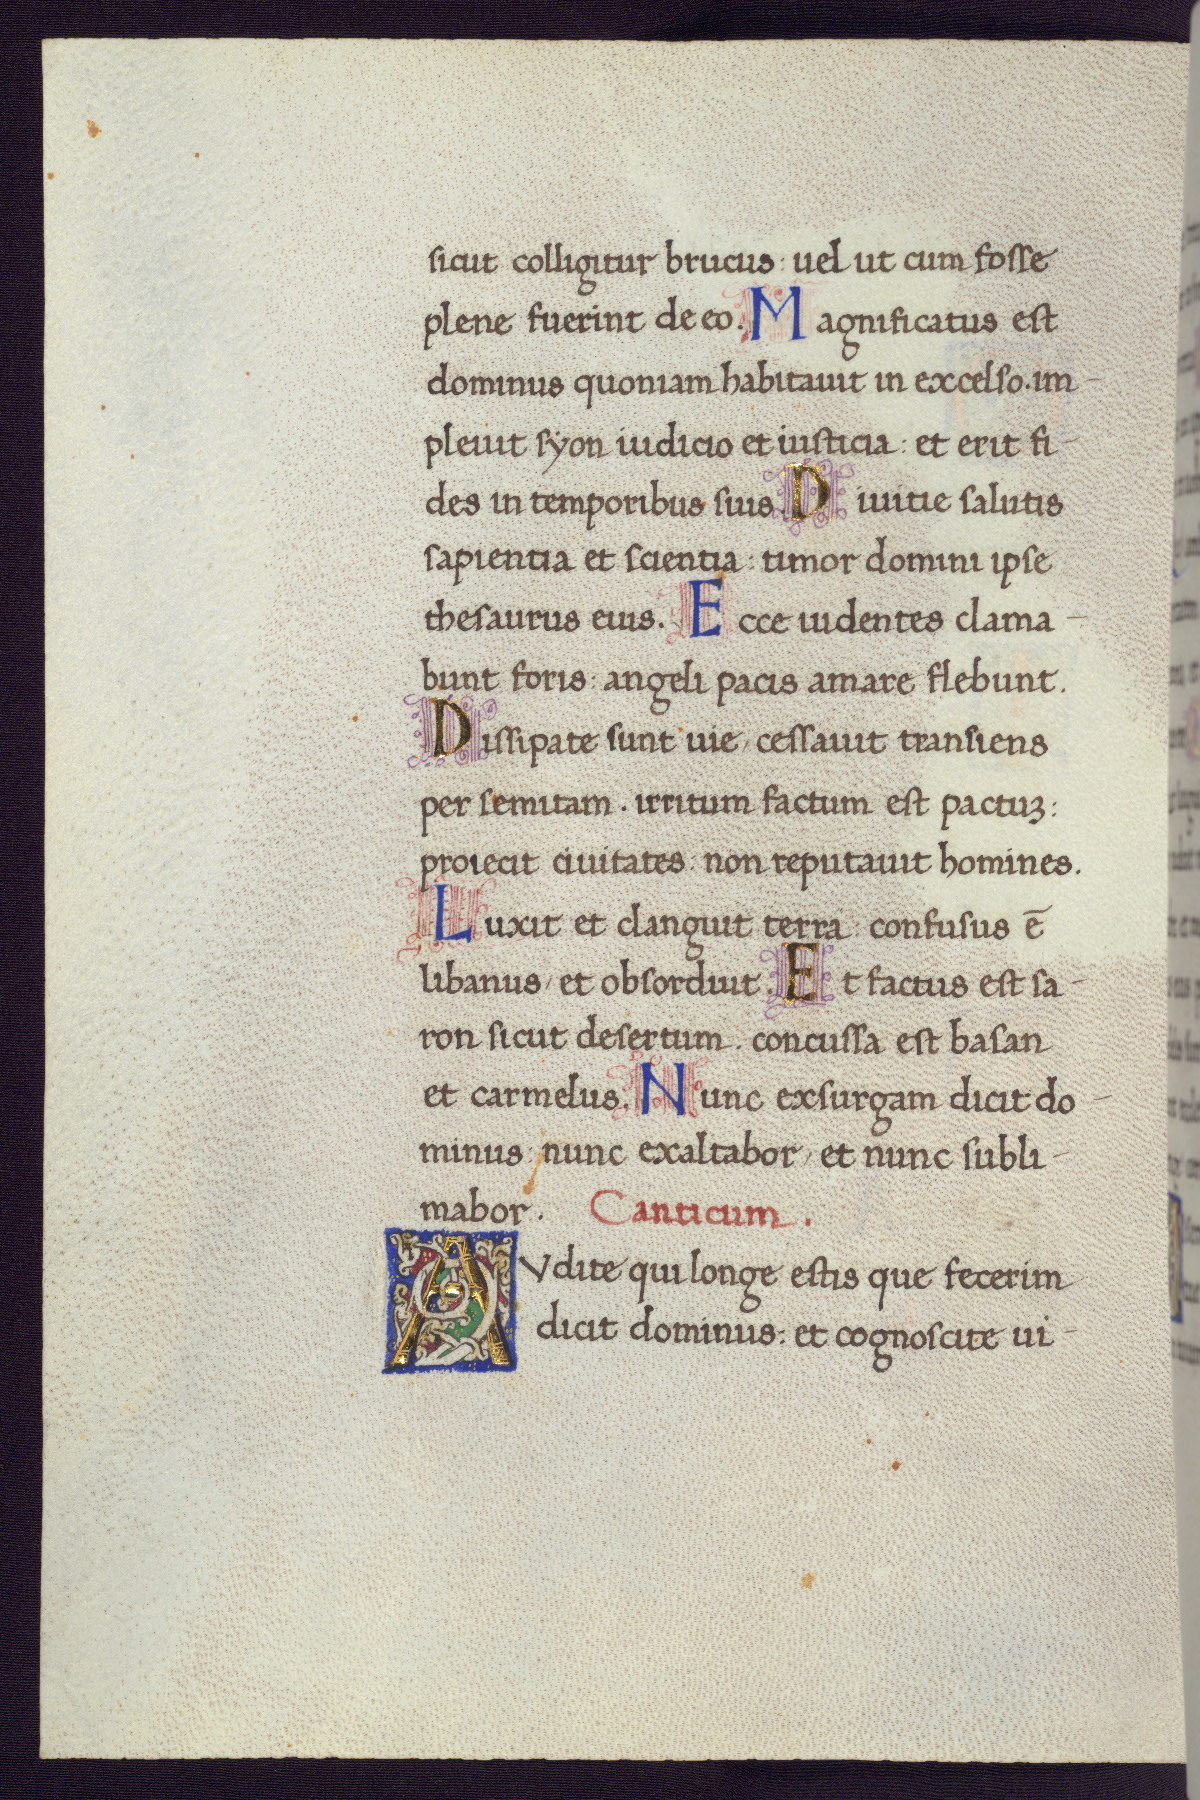 sicut colligitur brucus: uel ut cum fosse
plene fuerint de eo. Magnificatus est
dominus quoniam habitauit in excelso. im-
pleuit sẏon iudicio et iusticia: et erit fi-
des in temporibus suis. Diuitie salutis
sapientia et scientia: timor domini ipse
thesaurus eius. Ecce uidentes clama-
bunt foris: angeli pacis amare flebunt.
Dissipate sunt uie, cessauit transiens
per semitam. irritum factum est pactuꝫ:
proiecit ciuitates: non reputauit homines.
Luxit et clanguit terra: confusus ē
libanus, et obsorduit. Et factus est sa-
ron sicut desertum. concussa est basan
et carmelus. Nunc exsurgam dicit do-
minus: nunc exaltabor, et nunc subli-
mabor. Canticum.
AVdite qui longe estis que fecerim
dicit dominus: et cognoscite ui-